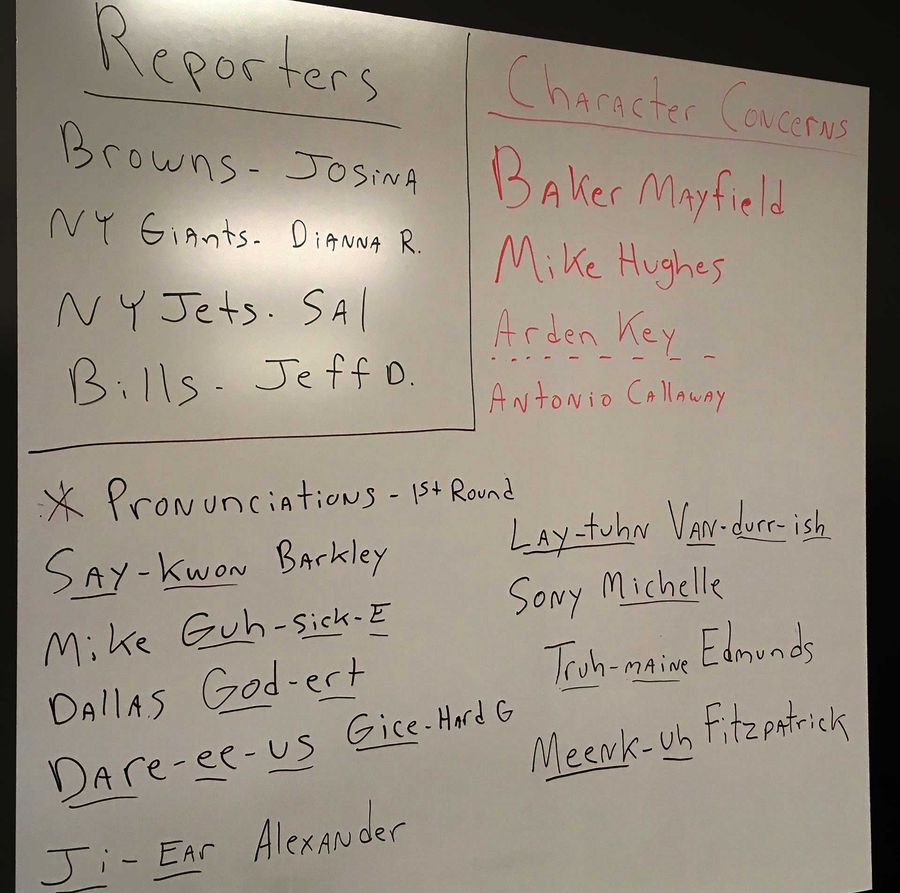 Reporters
Browns - Josina
NY Giants - Dianna R.
NY Jets - Sal
Bills - Jeff D.
Character Concerns
Baker Mayfield
Mike Hughes
Arden Key
Antonio Callaway
* Pronunciations - 1st Round
Say-kwon Barkley
Mike Guh-sick-E
Dallas God-ert
Dare-ee-us Gice-Hard G
Ji-Ear Alexander
Lay-tuhn Van-durr-ish
Sony Michelle
Truh-maine Edmunds
Meenk-uh Fitzpatrick